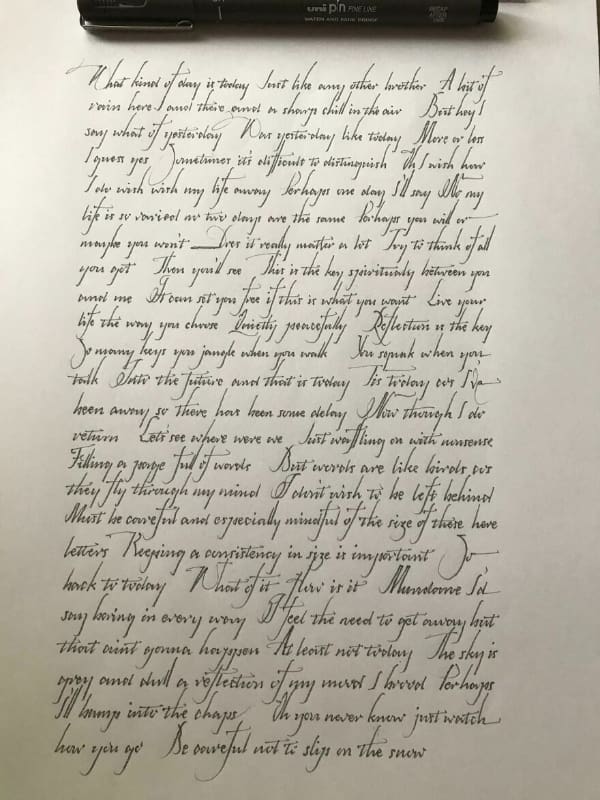 uni pin FINE LINE
WATER AND FADE PROOF
RECAP AFTER USE
What kind of day is today Just like any other brother A bit of
rain here and there and a sharp chill in the air But hey I
say what of yesterday Was yesterday like today More or less
I guess yes Sometimes it's difficult to distinguish Oh I wish how
I do wish wish my life away Perhaps one day I'll say No my
life is so varied no two days are the same Perhaps you will or
maybe you won't Does it really matter a lot Try to think of all
you got Then you'll see This is the key spiritualy between you
and me It can set you free if this is what you want Live your
life the way you choose Quietly peacefully Reflection is the key
So many keys you jangle when you walk You squeak when you
talk Into the future and that is today Tis today as I've
been away so there has been some delay Now though I do
return Let's see where were we Just waffling on with nonsense
Filling a page full of words But words are like birds as
they fly through my mind I don't wish to be left behind
Must be careful and especially mindful of the size of these here
letters Keeping a consistency in size is important So
back to today What of it How is it Mundane I'd
say boring in every way I feel the need to get away but
that aint gonna happen At least not today The sky is
grey and dull a reflection of my mood I brood Perhaps
I'll bump into the chaps Oh you never know just watch
how you go Be careful not to slip on the snow